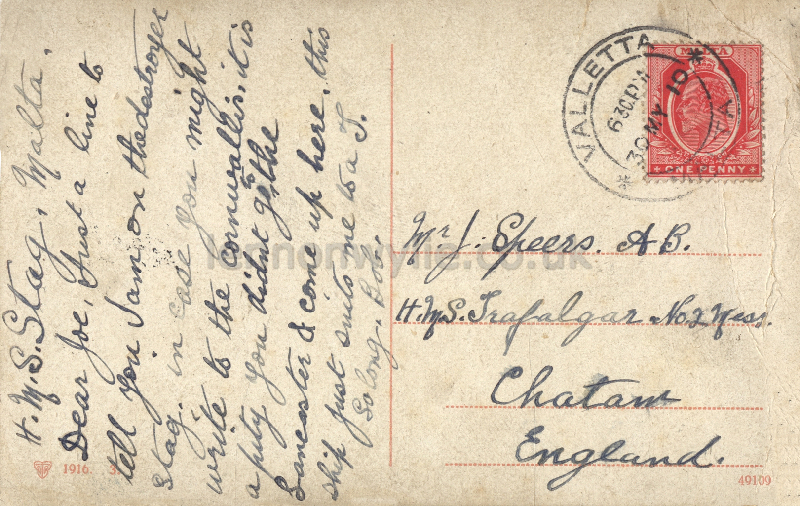 H.M.S. Stag, Malta.
Dear Joe, Just a line to
tell you I am on the destroyer
Stag, in case you might
write to the cornwallis, it is
a pity you didnt get the
Lancaster & come up here, this
ship just suits me to a T.
So long. Bob.
VALLETTA
630PM
30 MY 10
MALTA
MALTA
ONE PENNY
Mr J. Speers. A.B.
H.M.S. Trafalgar No 2 Mess.
Chatam
England.
lennonwylie.co.uk
1916.
49109